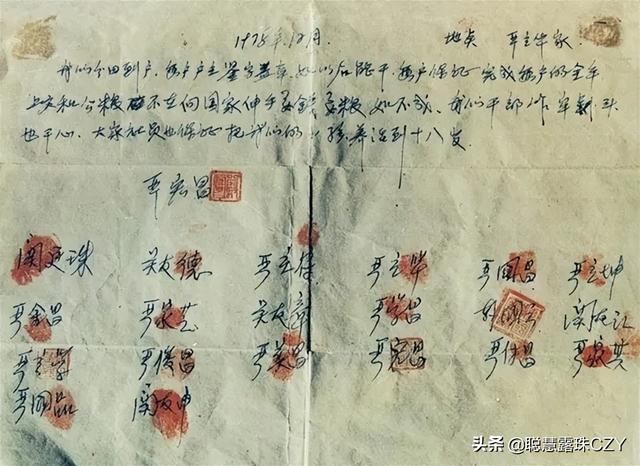 1978年12月. 地点 严立华家.
我们分田到户,每户户主签字盖章,如以后能干,每户保证完成每户的全年
上交和公粮 不在向国家伸手要钱要粮 如不成,我们干部作牢刹头
也干心,大家社员也保证把我们的小孩养活到十八岁.
严宏昌
关廷珠 关友德 严立符 严立华 严国昌 严立坤
严金昌 严家芝 关友章 严学昌 韩国云 关友江
严立学 严俊昌 严美昌 严宏昌 严付昌 严家其
严国品 关友申
头条 @聪慧露珠CZY